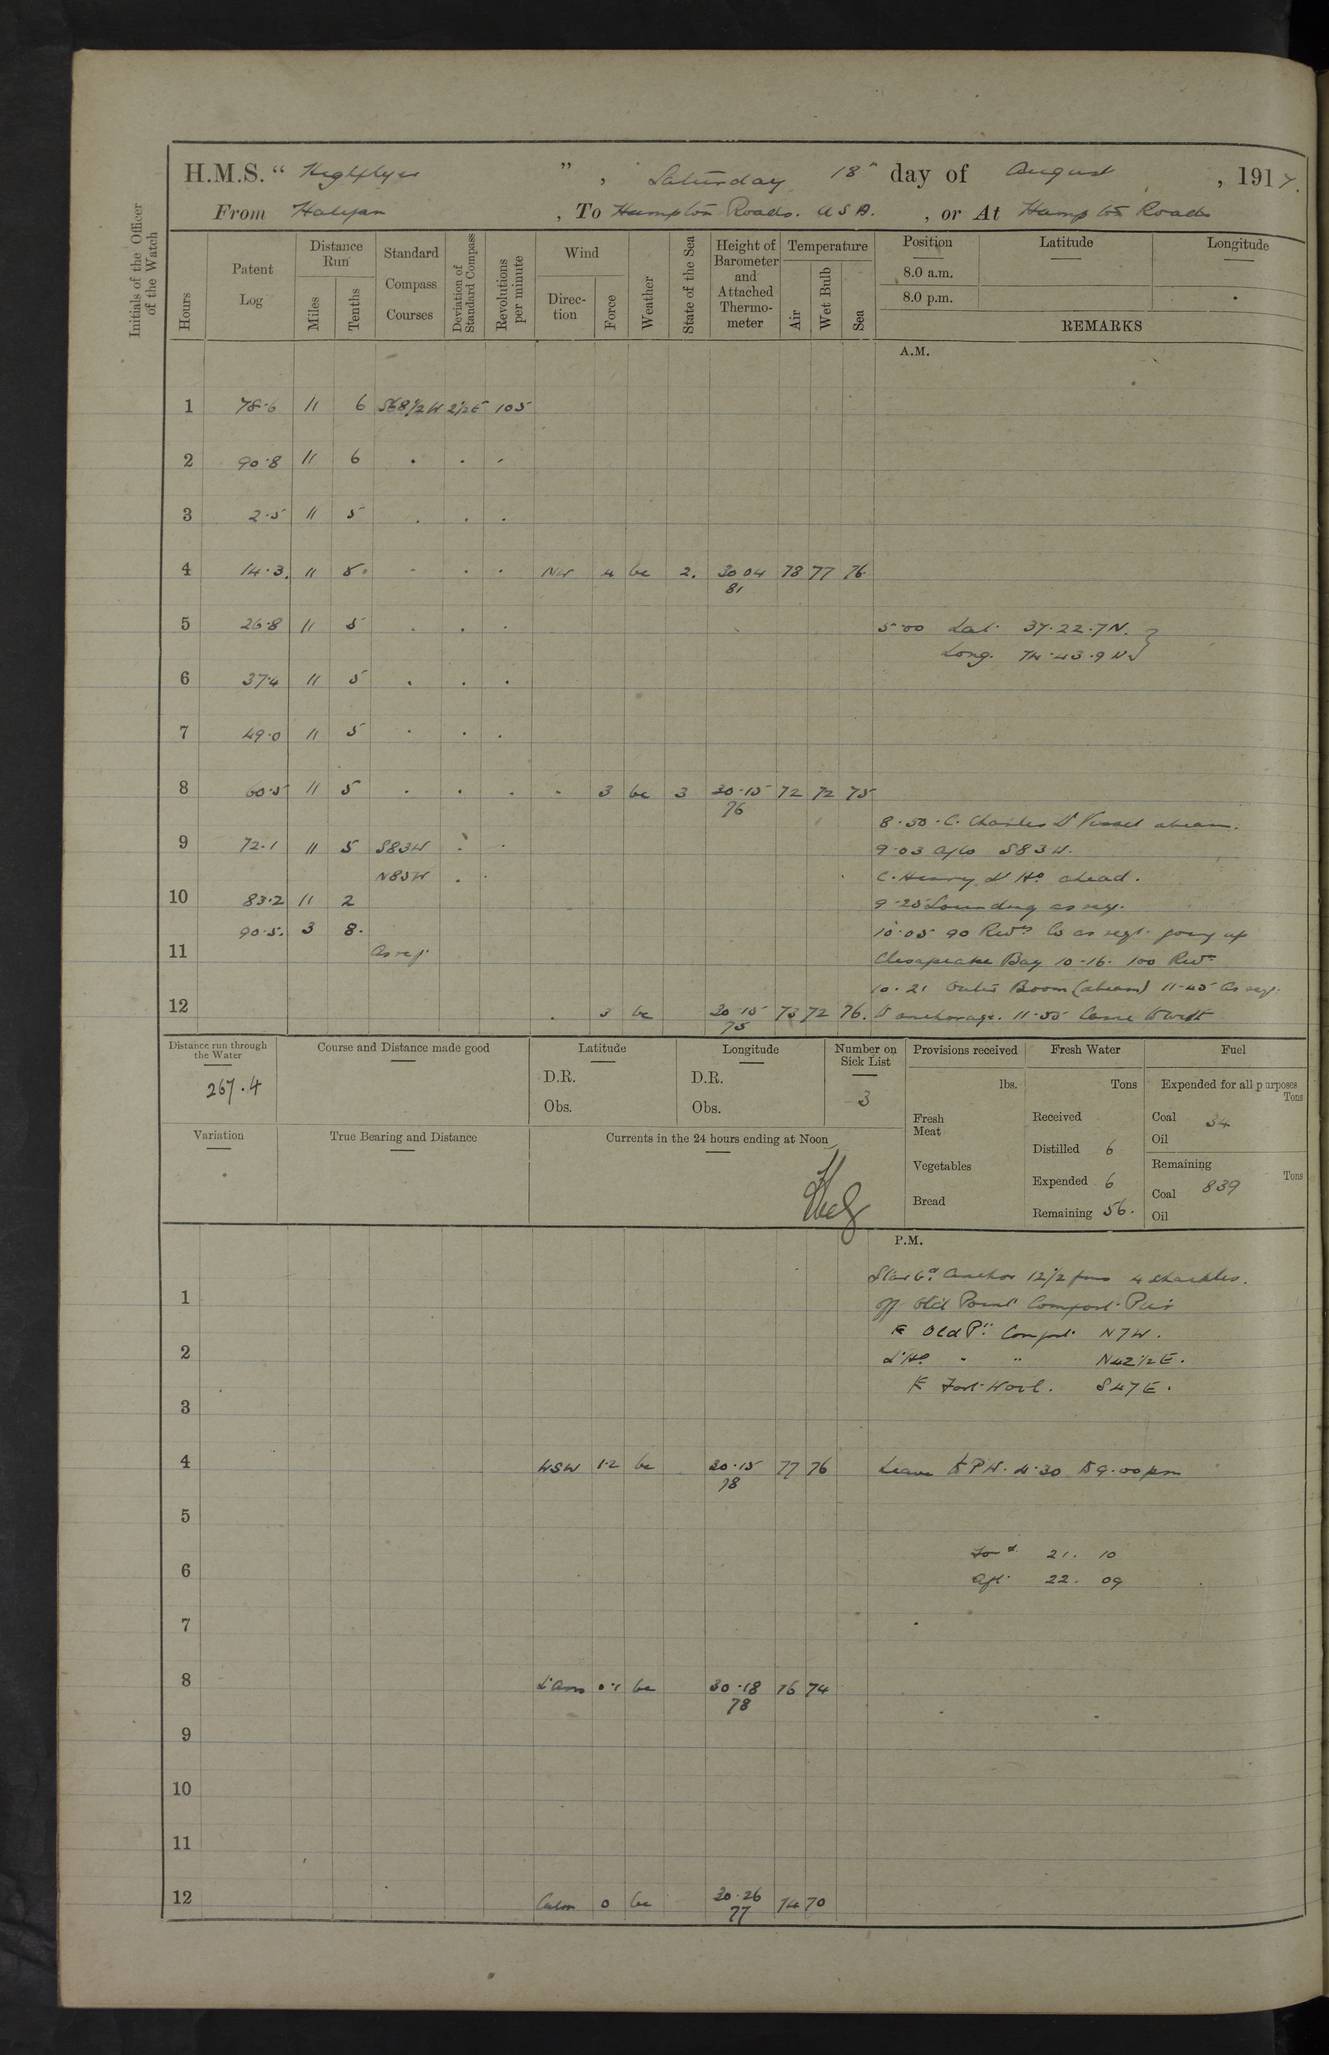 H.M.S. "Highflyer", Saturday 18th day of August, 1917.
From Halifax, To Hampton Roads. USA., or At Hampton Roads
Initials of the Officer of the Watch
Hours
Patent Log
Distance Run
Miles
Tenths
Standard Compass Courses
Deviation of Standard Compass
Revolutions per minute
Wind
Direction
Force
Weather
State of the Sea
Height of Barometer and Attached Thermometer
Temperature
Air
Wet Bulb
Sea
Position
Latitude
Longitude
8.0 a.m.
8.0 p.m.
REMARKS
A.M.
1 78.6 11 6 S68½W 2½E 105
2 90.8 11 6 . . .
3 2.5 11 5 . . .
4 14.3. 11 5. . . . NW 4 bc 2. 30 04 78 77 76
81
5 26.8 11 5 . . . 5.00 Lat. 37.22.7N. }
Long. 74.43.9W
6 37.4 11 5 . . .
7 49.0 11 5 . . .
8 60.5 11 5 . . . . 3 bc 3 30.15 72 72 75
76
8.50. C. Charles Lt Vessel abeam.
9 72.1 11 5 S83W . . 9.03 A/Co S83W.
N85W . . C. Henry Lt Ho. ahead.
10 83.2 11 2 9.25 Sounding as req.
90.5. 3 8. 10.05 90 Revs Co as reqt. going up
11 As req. Chesapeake Bay 10.16. 100 Revs
10.21 Outer Boom (abeam) 11.45 As req.
12 . 3 bc 30 15 73 72 76. to anchorage. 11.55 Came to with
75
Distance run through the Water
267.4
Course and Distance made good
Latitude
D.R.
Obs.
Longitude
D.R.
Obs.
Number on Sick List
3
Provisions received
lbs.
Fresh Meat
Vegetables
Bread
Fresh Water
Tons
Received
Distilled 6
Expended 6
Remaining 56.
Fuel
Expended for all purposes
Tons
Coal 34
Oil
Remaining
Tons
Coal 839
Oil
Variation
True Bearing and Distance
Currents in the 24 hours ending at Noon
P.M.
Starbd. Anchor 12½ fms 4 shackles.
1 off Old Point Comfort Pier
Old Pt. Comfort N7W.
2 Lt Ho. " " N42½E.
Fort Wool. S47E.
3
4 WSW 1.2 bc 30.15 77 76 Leave to P.W. 4.30 to 9.00pm
78
5
Ford. 21. 10
6 Aft. 22. 09
7
8 Lt Airs 0.1 bc 30.18 76 74
78
9
10
11
12 Calm 0 bc 30.26 74 70
77